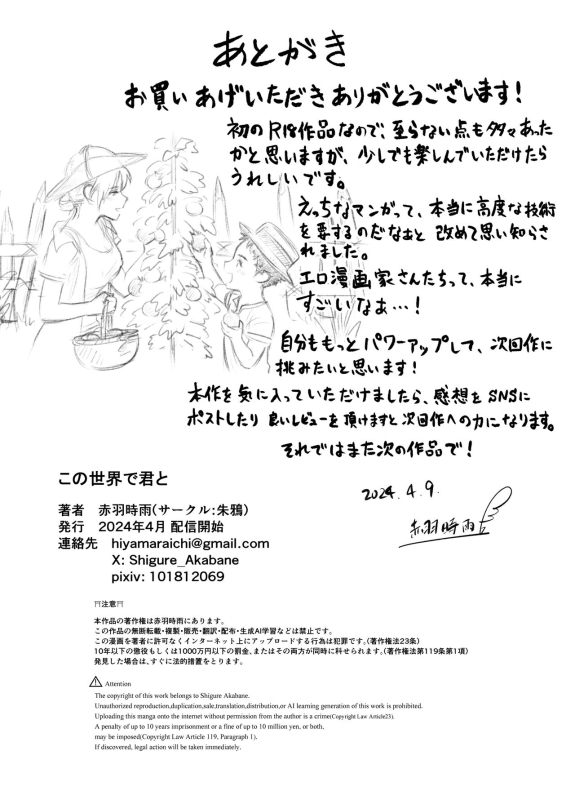 あとがき
お買いあげいただきありがとうございます!
初のR18作品なので、至らない点も多々あった
かと思いますが、少しでも楽しんでいただけたら
うれしいです。
えっちなマンガって、本当に高度な技術
を要するのだなぁと 改めて思い知らさ
れました。
エロ漫画家さんたちって、本当に
すごいなぁ…!
自分ももっとパワーアップして、次回作に
挑みたいと思います!
本作を気に入っていただけましたら、感想をSNSに
ポストしたり 良いレビューを頂けますと次回作への力になります。
それではまた次の作品で!
2024.4.9.
赤羽時雨
この世界で君と
著者 赤羽時雨(サークル:朱鴉)
発行 2024年4月 配信開始
連絡先 hiyamaraichi@gmail.com
X: Shigure_Akabane
pixiv: 101812069
⛩注意⛩
本作品の著作権は赤羽時雨にあります。
この作品の無断転載・複製・販売・翻訳・配布・生成AI学習などは禁止です。
この漫画を著者に許可なくインターネット上にアップロードする行為は犯罪です。(著作権法23条)
10年以下の懲役もしくは1000万円以下の罰金、またはその両方が同時に科せられます。(著作権法第119条第1項)
発見した場合は、すぐに法的措置をとります。
⚠ Attention
The copyright of this work belongs to Shigure Akabane.
Unauthorized reproduction,duplication,sale,translation,distribution,or AI learning generation of this work is prohibited.
Uploading this manga onto the internet without permission from the author is a crime(Copyright Law Article23).
A penalty of up to 10 years imprisonment or a fine of up to 10 million yen, or both,
may be imposed(Copyright Law Article 119, Paragraph 1).
If discovered, legal action will be taken immediately.